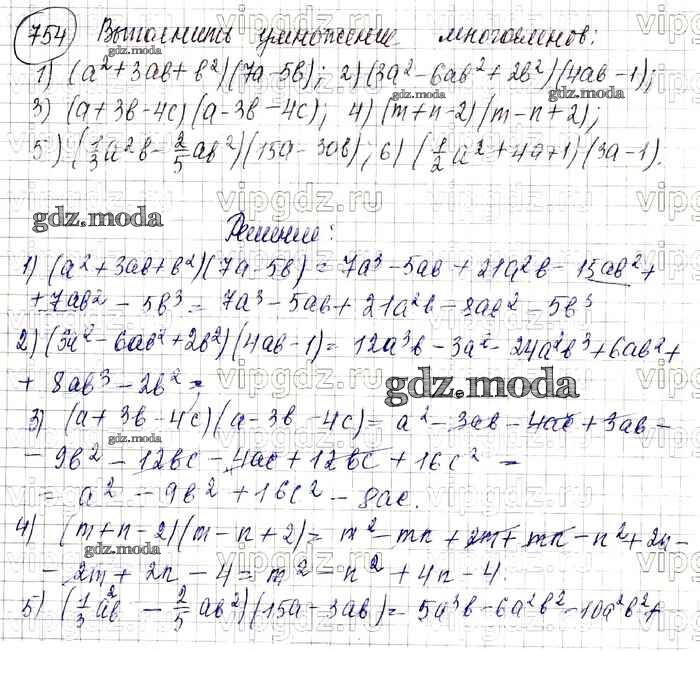 754 Выполнить умножение многочленов:
1) (a²+3ab+b²)(7a-5b); 2) (3a²-6ab²+2b²)(4ab-1);
3) (a+3b-4c)(a-3b-4c); 4) (m+n-2)(m-n+2);
5) (1/3a²b-2/5ab²)(15a-30b); 6) (1/2a²+4a+1)(3a-1).
Решение:
1) (a²+3ab+b²)(7a-5b)=7a³-5ab+21a²b-15ab²+
+7ab²-5b³=7a³-5ab+21a²b-8ab²-5b³
2) (3a²-6ab²+2b²)(4ab-1)=12a³b-3a²-24a²b³+6ab²+
+8ab³-2b²;
3) (a+3b-4c)(a-3b-4c)=a²-3ab-4ac+3ab-
-9b²-12bc-4ac+12bc+16c²=
=a²-9b²+16c²-8ac.
4) (m+n-2)(m-n+2)=m²-mn+2m+mn-n²+2n-
-2m+2n-4=m²-n²+4n-4.
5) (1/3a²b-2/5ab²)(15a-3ab)=5a³b-6a²b²-10a²b²+
gdz.moda
vipgdz.ru